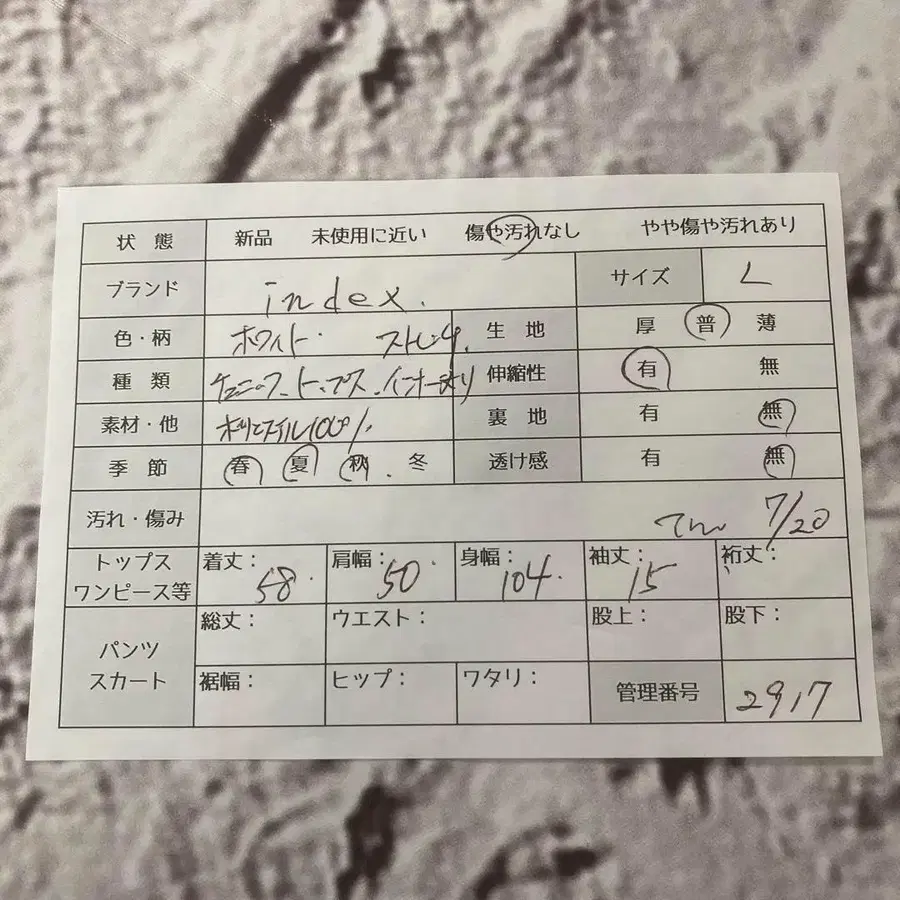 状 態 新品 未使用に近い 傷や汚れなし やや傷や汚れあり
ブランド index. サイズ L
色・柄 ホワイト・ ストレッチ. 生 地 厚 普 薄
種 類 チュニック.トップス. 伸縮性 有 無
素材・他 ポリエステル100% 裏 地 有 無
季 節 春 夏 秋 . 冬 透け感 有 無
汚れ・傷み 7/20
トップス
ワンピース等 着丈: 58. 肩幅: 50. 身幅: 104. 袖丈: 15 裄丈:
パンツ
スカート 総丈: ウエスト: 股上: 股下:
裾幅: ヒップ: ワタリ: 管理番号 2917